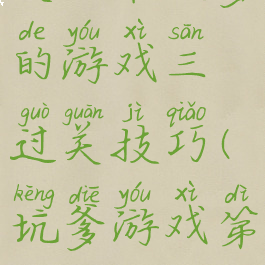 de yóu xì sān
的游戏三
guò guān jì qiǎo
过关技巧(
kēng diē yóu xì dì
坑爹游戏第